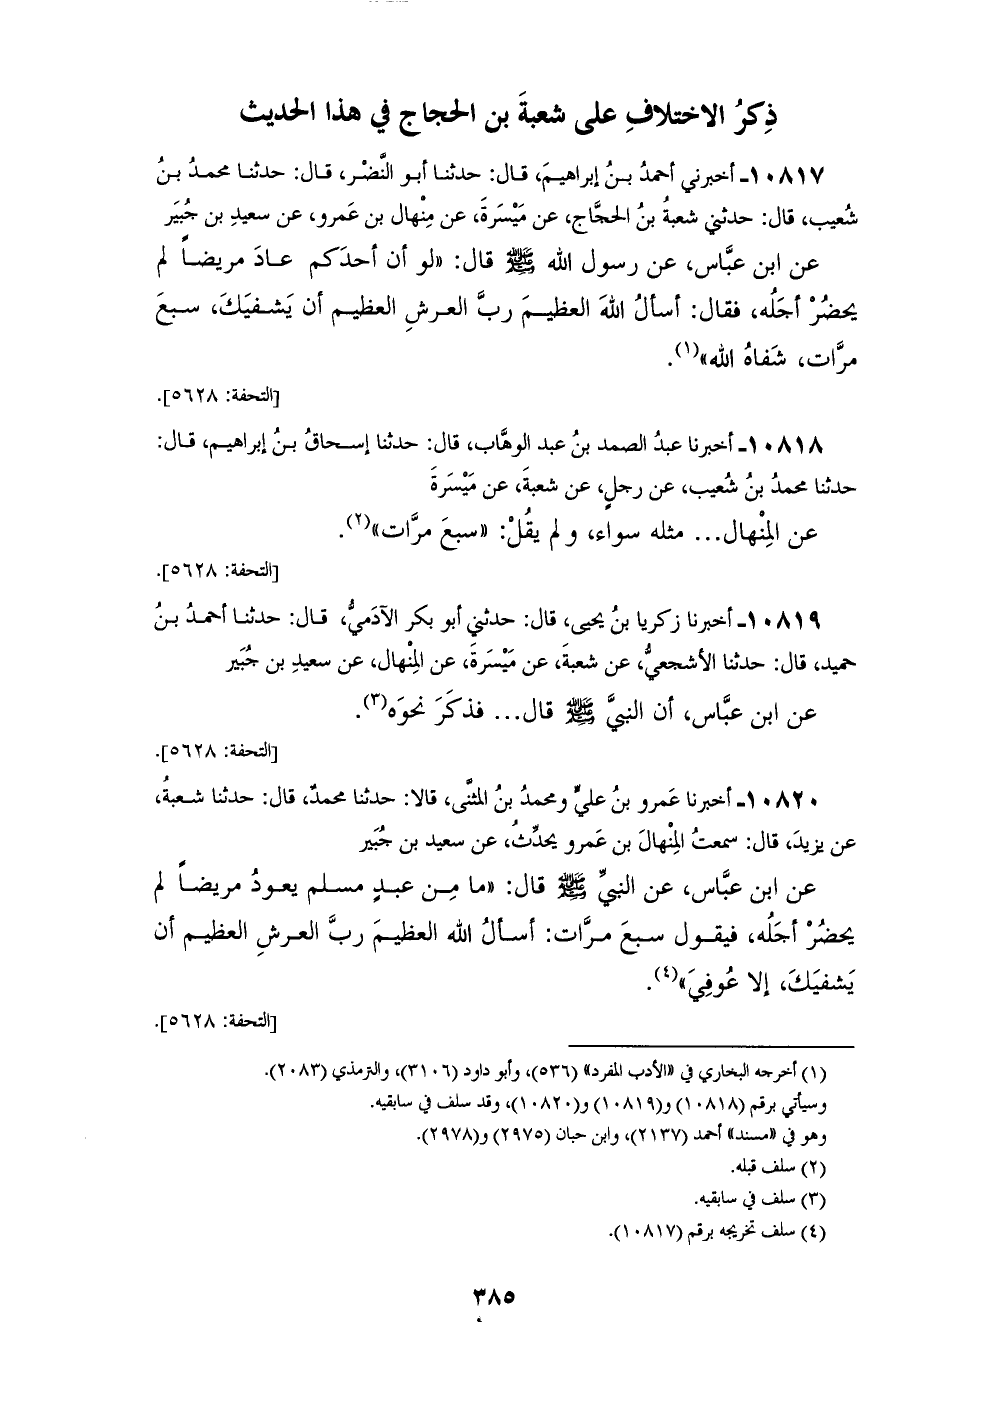 ذِكرُ الاختلافِ على شعبةَ بن الحجاج في هذا الحديث
١٠٨١٧ـ أخبرني أحمدُ بـنُ إبراهيمَ، قـال: حدثنـا أبـو النَّضْر، قـال: حدثنـا محمـدُ بـنُ
شُعيب، قال: حدثني شعبةُ بنُ الحجَّاج، عن مَيْسَرةَ، عن مِنْهال بن عَمرو، عن سعيدِ بن جُبَير
عن ابن عبَّاس، عن رسول الله ﷺ قال: «لو أن أحدَكم عـادَ مريضـاً لم
يحضُرْ أجَلُه، فقال: أسألُ اللهَ العظيـمَ ربَّ العـرشِ العظيـم أن يَشـفيَكَ، سـبعَ
مرَّات، شَفاهُ الله»(١).
[التحفة: ٥٦٢٨].
١٠٨١٨ـ أخبرنا عبدُ الصمد بنُ عبد الوهَّاب، قال: حدثنا إسـحاقُ بـنُ إبراهيـم، قـال:
حدثنا محمدُ بنُ شُعيب، عن رجلٍ، عن شعبةَ، عن مَيْسَرةَ
عن المِنْهال... مثله سواء، و لم يقُلْ: «سبعَ مرَّات»(٢).
[التحفة: ٥٦٢٨].
١٠٨١٩ـ أخبرنا زكريا بنُ يحيى، قال: حدثني أبو بكر الآدَميُّ، قـال: حدثنـا أحمـدُ بـنُ
حميد، قال: حدثنا الأشجعيُّ، عن شعبةَ، عن مَيْسَرةَ، عن المِنْهال، عن سعيدِ بن جُبَير
عن ابن عبَّاس، أن النبيَّ ﷺ قال... فذكَرَ نحوَه(٣).
[التحفة: ٥٦٢٨].
١٠٨٢٠ـ أخبرنا عَمرو بنُ عليٍّ ومحمدُ بنُ المثنَّى، قالا: حدثنا محمدٌ، قال: حدثنا شـعبةُ،
عن يزيدَ، قال: سمعتُ المِنْهالَ بن عَمرو يحدِّثُ، عن سعيد بن جُبَير
عن ابن عبَّاس، عن النبيِّ ﷺ قال: «ما مِـن عبـدٍ مسـلم يعـودُ مريضـاً لم
يحضُرْ أجَلُه، فيقـول سـبعَ مـرَّات: أسـألُ الله العظيـمَ ربَّ العـرشِ العظيـم أن
يَشفيَكَ، إلا عُوفِيَ»(٤).
[التحفة: ٥٦٢٨].
(١) أخرجه البخاري في «الأدب المفرد» (٥٣٦)، وأبو داود (٣١٠٦)، والترمذي (٢٠٨٣).
وسيأتي برقم (١٠٨١٨) و(١٠٨١٩) و(١٠٨٢٠)، وقد سلف في سابقيه.
وهو في «مسند» أحمد (٢١٣٧)، وابن حبان (٢٩٧٥) و(٢٩٧٨).
(٢) سلف قبله.
(٣) سلف في سابقيه.
(٤) سلف تخريجه برقم (١٠٨١٧).
٣٨٥